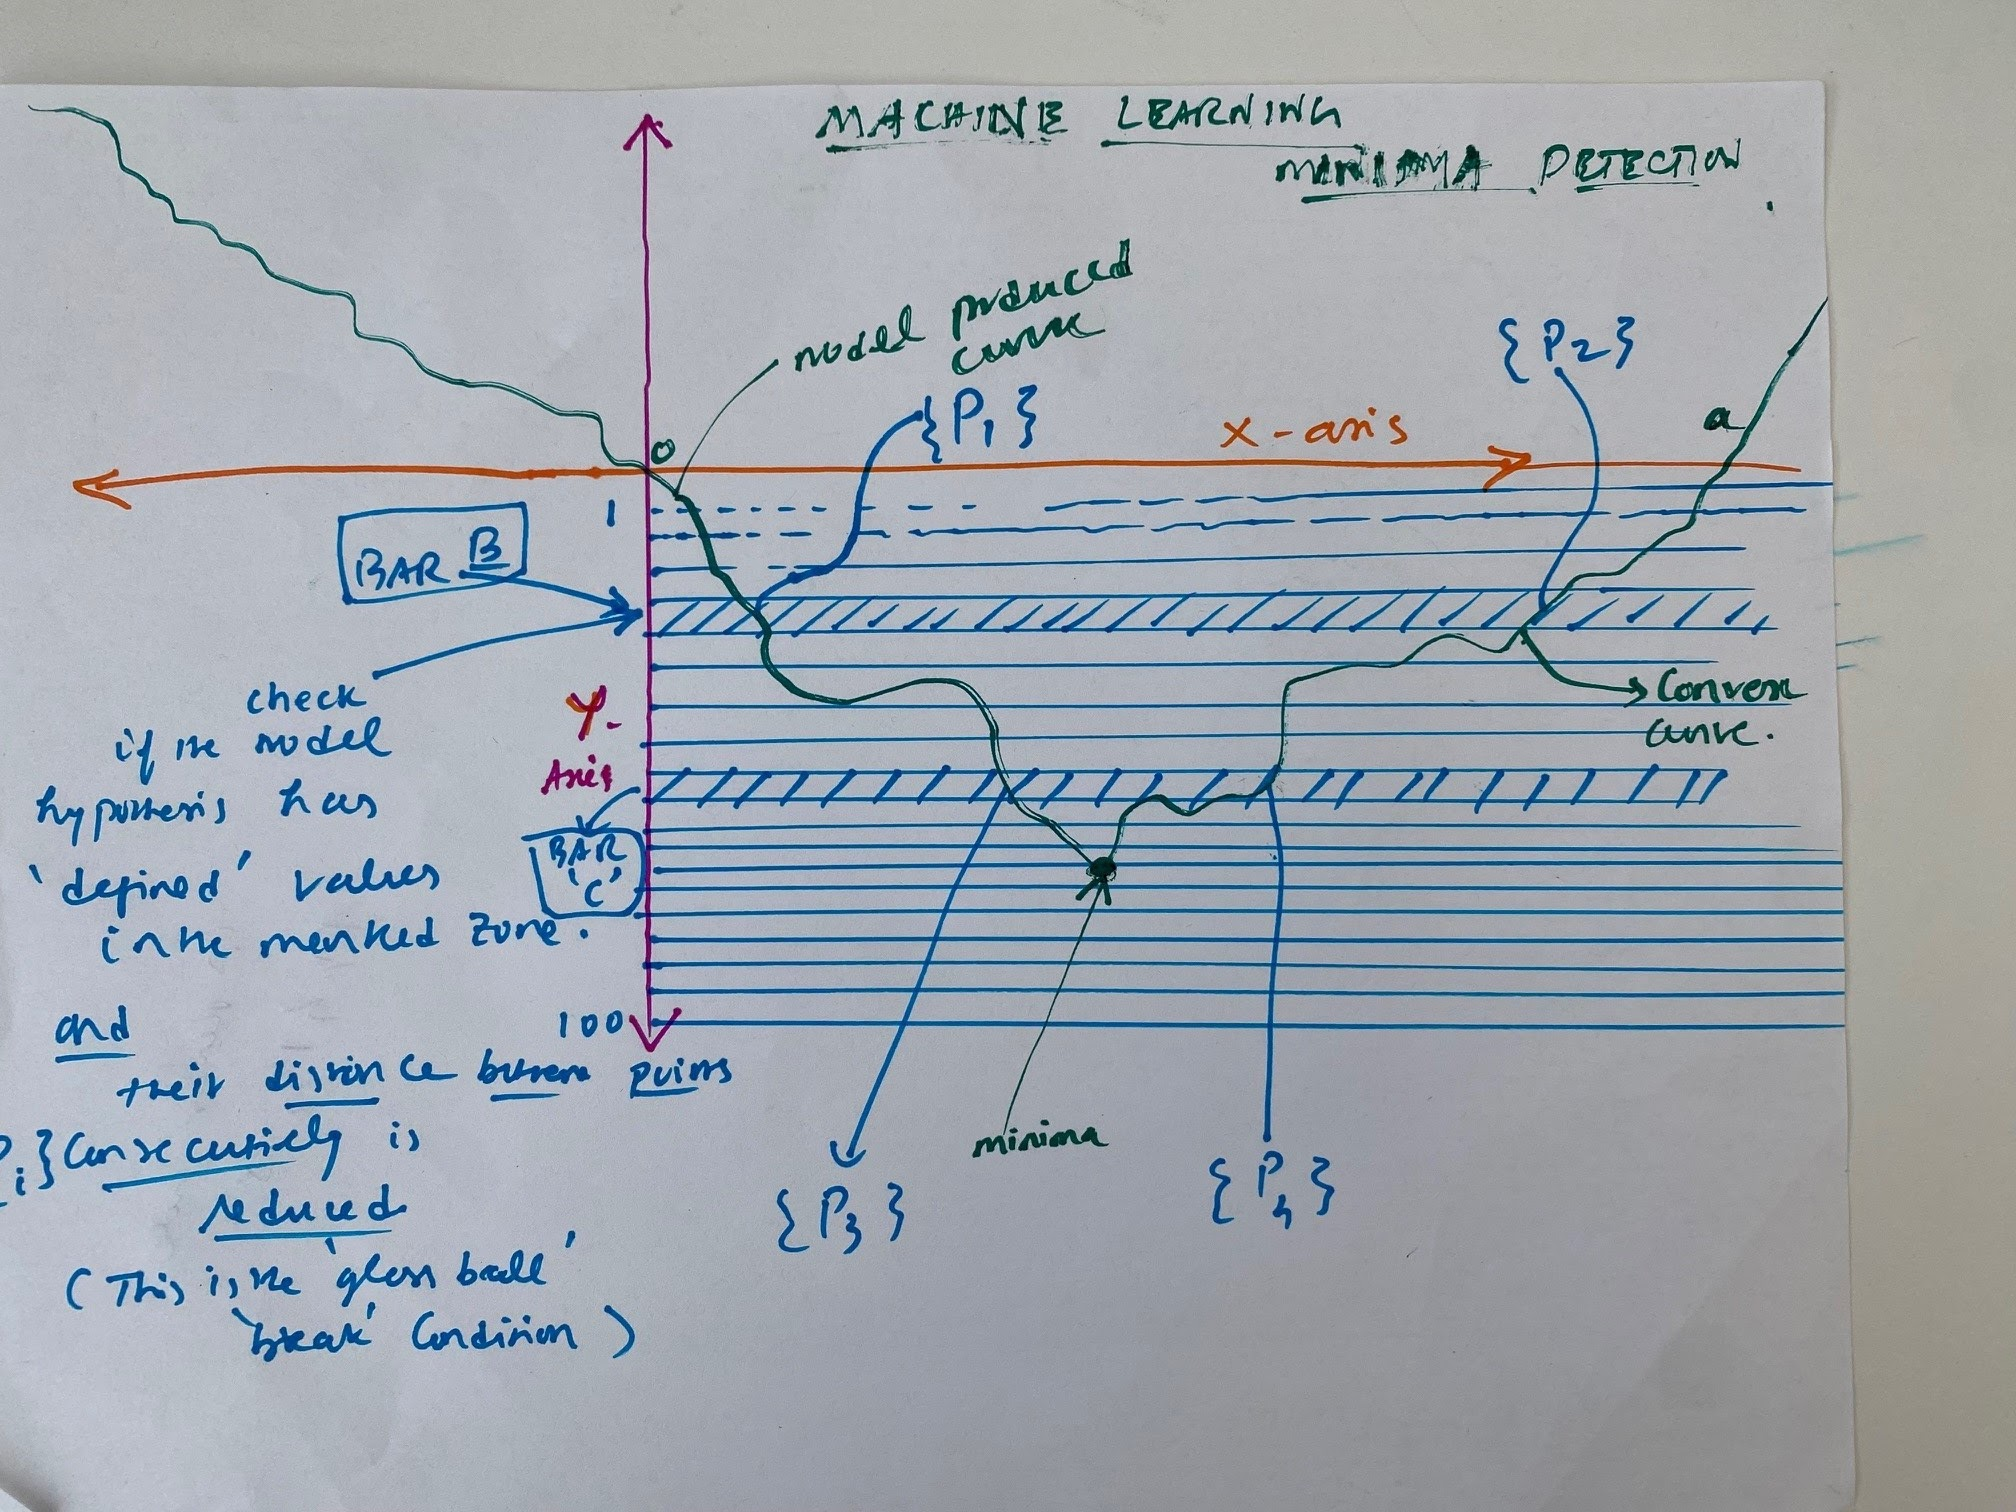 MACHINE LEARNING
MINIMA DETECTION
model produced
curve
{P1}
{P2}
x-axis
a
0
1
BAR B
check
if the model
hypothesis has
'defined' values
in the marked zone.
Y-
Axis
BAR
'C'
Convex
curve.
100
and
their distance between points
Pi} Consecutively is
reduced
(This is the 'glass ball'
'break' Condition)
minima
{P3}
{P4}